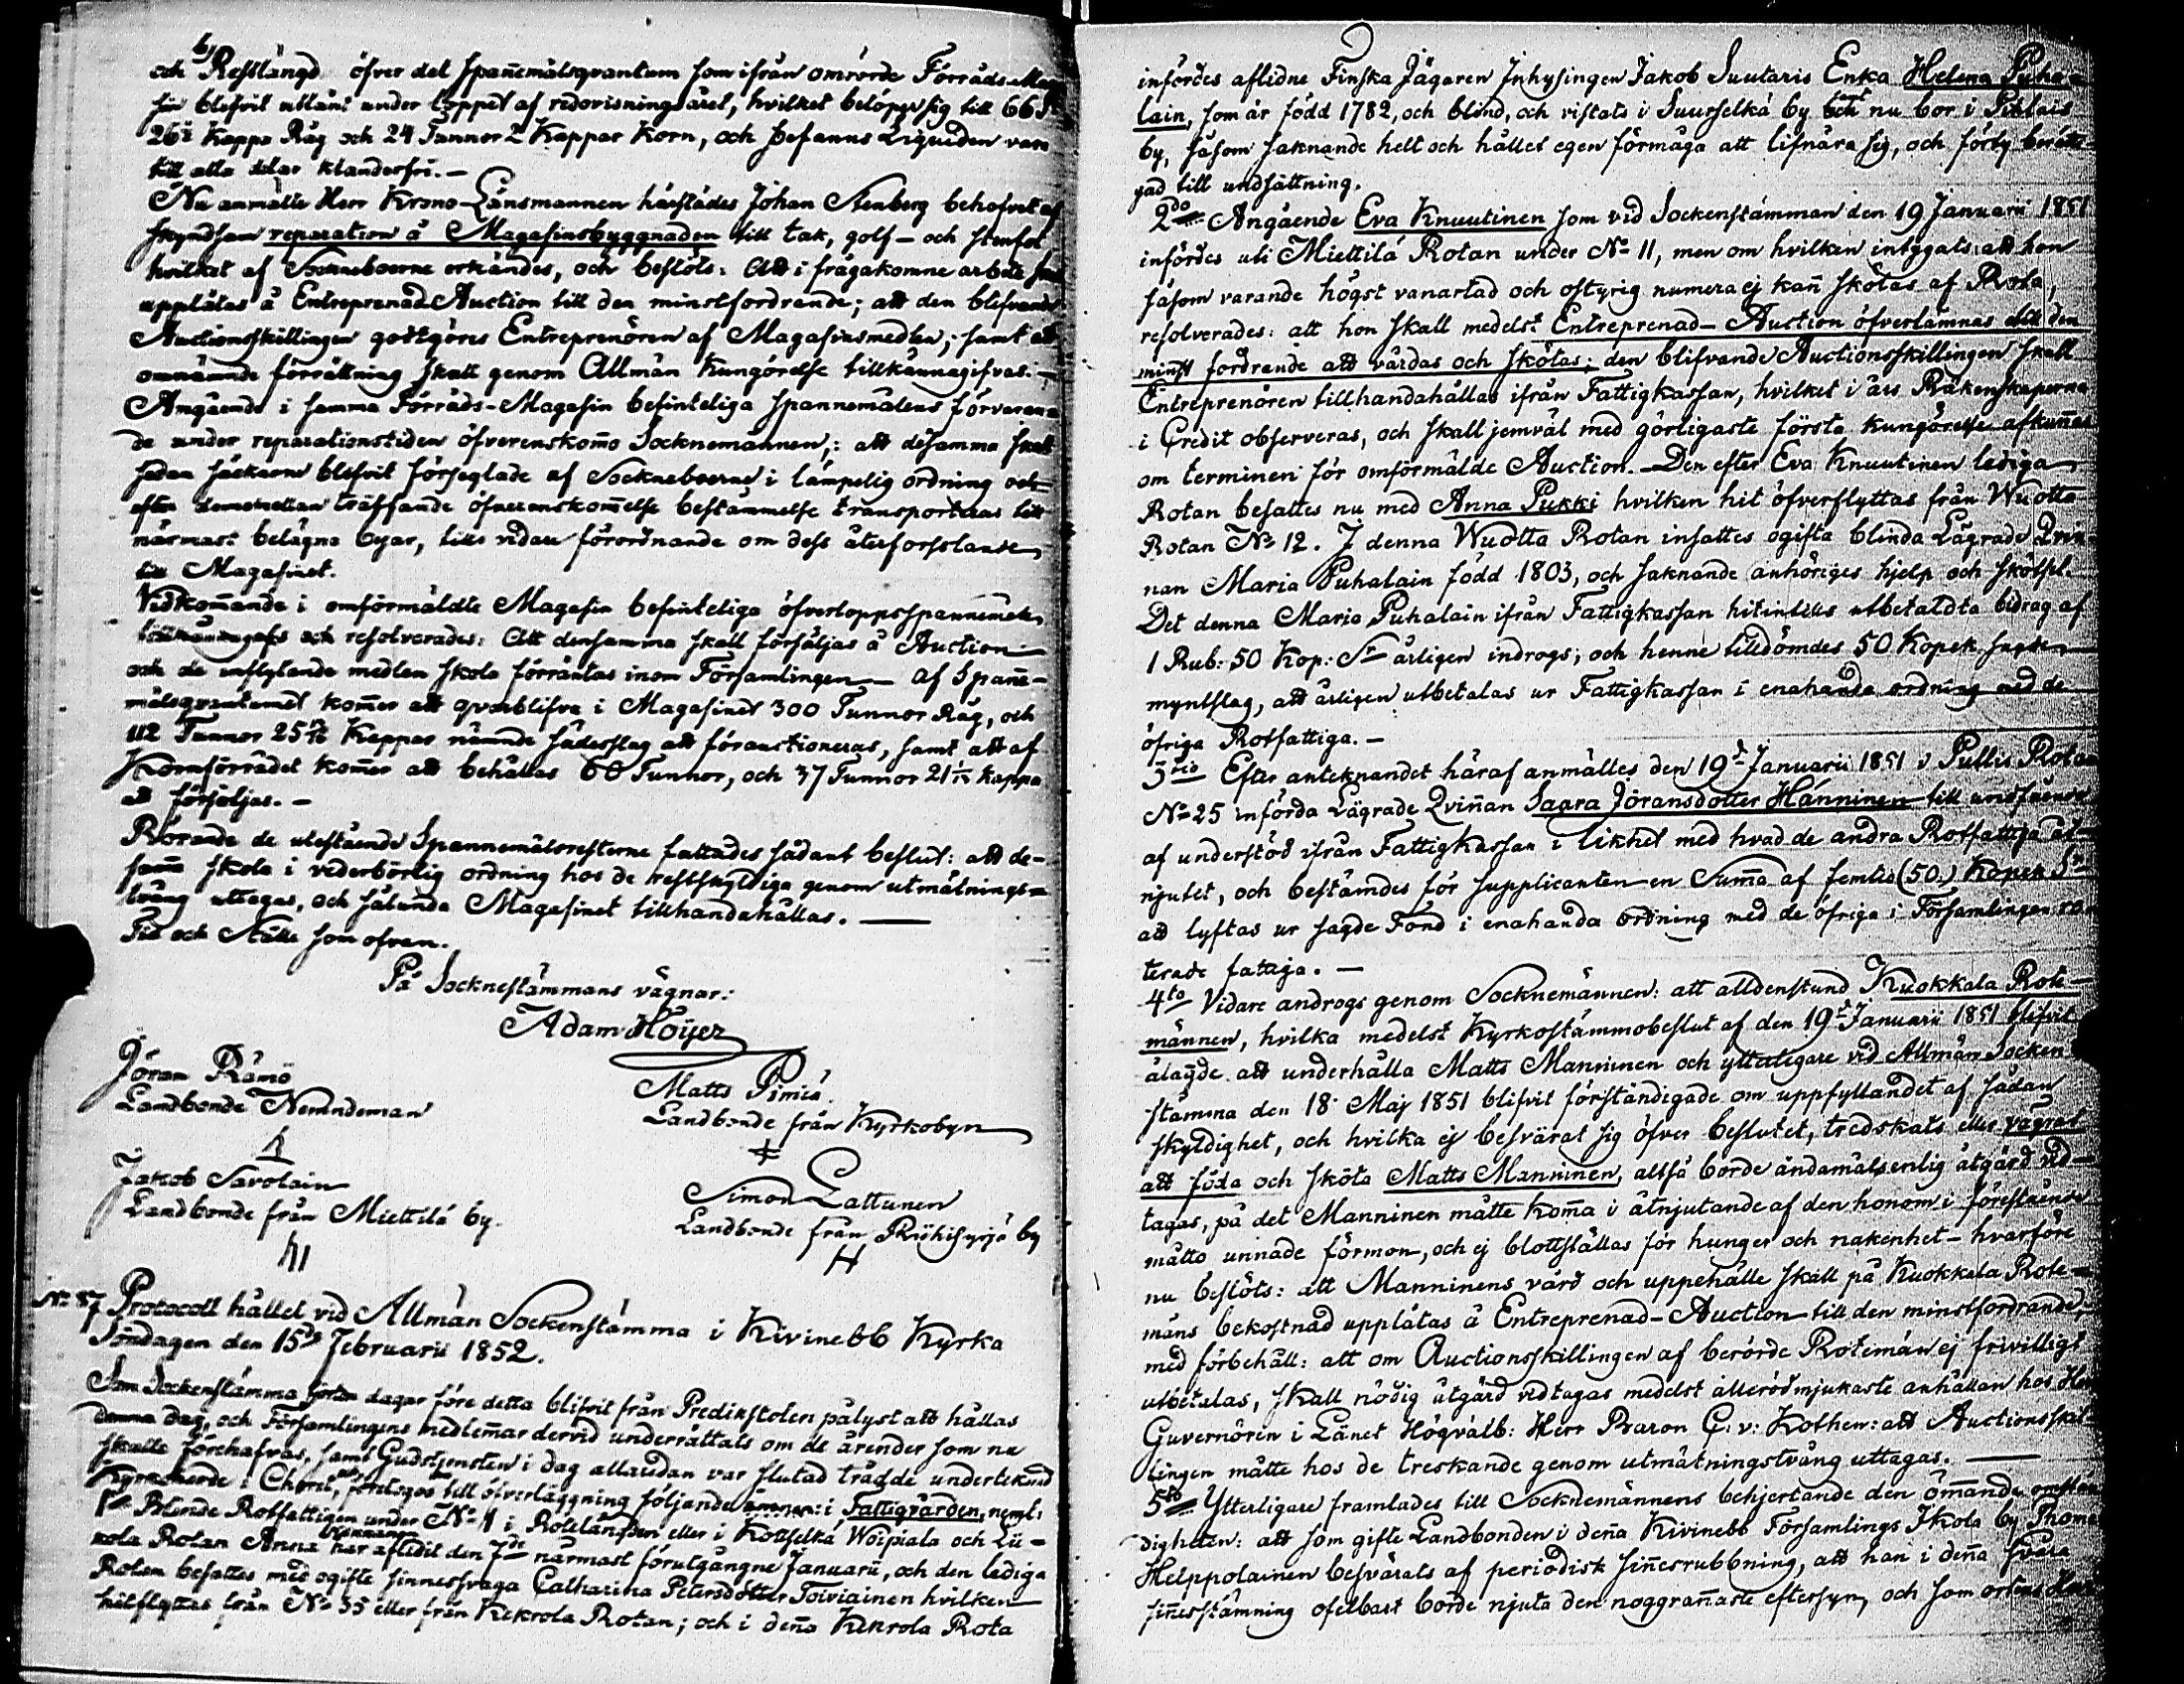 b,
och Restlängd öfver det spanemålsqvantum som ifrån omrörde Förråds-Maga
sin blifvit utlånt under loppet af redovisningsåret, hvilket belöper sig till 66
26 Kappa Råg och 24 Tunnor 2 Kappar Korn, och befanns Liquiden vara
till alla delar klanderfri. —
Nu anmälte Herr Krono-Länsmannen härstädes Johan Stenberg behofvet af
skyndsam reparation å Magasinsbyggnaden till tak, golf- och stenfot
hvilket af Sockneboerne erkändes, och beslöts: Att i frågakomne arbete skall
upplåtas å Entreprenad Auction till den minstfordrande; att den blifvande
Auctionsskillingen godtgöres Entreprenören af Magasinsmedlen; samt att
omnämnde förrättning skall genom Allmän Kungörelse tillkännagifvas. —
Angående i samma Förråds-Magasin befinteliga spannemålens förvaran-
de under reparationstiden öfverenskomo Socknemännen,: att desamma skall
sedan säckarne blifvit förseglade af Sockneboerne i lämpelig ordning och
efter dememellan träffande öfverenskomelse bestämmelse transporteras till
närmast belägna byar, tills vidare förordnande om dess återforslande
till Magasinet.
Vidkomande i omförmäldte Magasin befinteliga öfverloppsspannemålen
och resolverades: Att densamma skall försäljas å Auction
och de inflytande medlen skola förräntas inom Församlingen — af Spane-
målsqvantumet komer att qvarblifva i Magasinet 300 Tunnor Råg, och
112 Tunnor 25 Kappar nämnde sädesslag att förauctioneras, samt att af
Kornförrådet komer att behållas 60 Tunnor, och 37 Tunnor 21 Kappa
att försäljas. —
Rörande de utestående Spannemålsresterne fattades sådant beslut: att de-
sama skola i vederbörlig ordning hos de restskyldige genom utmätnings-
tvång uttagas, och sålunda Magasinet tillhandahållas. —
Tid och Ställe som ofvan.
På Socknestämmans vägnar:
Adam Höijer
Jöran Rämö
Landbonde Nemndeman
Matts Pimiä.
Landbonde från Kyrkobyn
Jakob Savolain
Landbonde från Miettilä by.
Simon Lattunen
Landbonde från Riihisyrjä by
No 87 Protocoll hållet vid Allmän Sockenstämma i Kivinebb Kyrka
Söndagen den 15de Februarii 1852.
Som Sockenstämma fjorton dagar före detta blifvit från Predikstolen pålyst att hållas
denna dag, och Församlingens medlemar dervid underrättats om de ärender som nu
skulle förehafvas, samt Gudstjensten i dag allaredan var slutad trädde undertecknad
Kyrkoherde i Choret, och företogos till öfverläggning följande ämnen: i Fattigvården, neml:
1mo Blinde Rotfattigen under No 11 i Rotelängden eller i Kottselkä Woipiala och Lii-
kola Rotan Anna har aflidit den 7de närmast förutgångne Januarii, och den lediga
Rotan besattes med ogifte sinnessvaga Catharina Petersdotter Toiviainen hvilken
hitflyttas från No 35 eller från Kekrola Rotan; och i dena Kekrola Rota
infördes aflidne Finska Jägaren Inhysingen Jakob Suutaris Enka Helena Puha-
lain, som är född 1782, och blind, och vistats i Suurselkä by samt nu bor i Pihlais
by, såsom saknande helt och hållet egen förmåga att lifnära sig, och förty berätti-
gad till undsättning.
2do Angående Eva Knuutinen som vid Sockenstämman den 19 Januarii 1851
infördes uti Miettilä Rotan under No 11, men om hvilken intygats: att hon
såsom varande högst vanartad och ostyrig numera ej kan skötas af Rota,
resolverades: att hon skall medelst Entreprenad-Auction öfverlämnas till den
minst fordrande att vårdas och skötas; den blifvande Auctionsskillingen skall
Entreprenören tillhandahållas ifrån Fattigkassan, hvilket i års Räkenskaperna
i Credit observeras, och skall jemväl med görligaste första kungörelse afkunas
om terminen för omförmälde Auction. — Den efter Eva Knuutinen lediga
Rotan besattes nu med Anna Pukki hvilken hit öfverflyttas från Wuotta
Rotan No 12. I denna Wuotta Rotan insattes ogifta blinda Lägrade Qvin-
nan Maria Puhalain född 1803, och saknande anhöriges hjelp och skötsel.
Det denna Maria Puhalain ifrån Fattigkassan hitintills utbetaldta bidrag af
1 Rub: 50 Kop: Sr årligen indrogs; och henne tilldömdes 50 Kopek sagde
myntslag, att årligen utbetalas ur Fattigkassan i enahanda ordning med de
öfriga Rotfattiga. —
3tio Efter antecknandet häraf anmältes den 19de Januarii 1851 i Pullis Rotan
No 25 införda Lägrade Qvinan Saara Jöransdotter Hänninen till undfående
af understöd ifrån Fattigkassan i likhet med hvad de andra Rotfattiga åt-
njutet, och bestämdes för supplicanten en Suma af femtio (50.) Kopek Sr
att lyftas ur sagde Fond i enahanda ordning med de öfriga i Församlingen ro-
terade fattiga. —
4to Vidare androgs genom Socknemännen: att alldenstund Kuokkala Rote-
männen, hvilka medelst Kyrkostämmobeslut af den 19de Januarii 1851 blifvit
ålagde att underhålla Matts Manninen och ytterligare vid Allmän Socken-
stämma den 18 Maj 1851 blifvit förständigade om uppfyllandet af sådan
skyldighet, och hvilka ej besvärat sig öfver beslutet, tredskats eller vägrat
att föda och sköta Matts Manninen, altså borde ändamålsenlig åtgärd vid-
tagas, på det Manninen måtte koma i åtnjutande af den honom i föreskrefne
måtto unnade förmon, och ej blottställas för hunger och nakenhet — hvarföre
nu beslöts: att Manninens vård och uppehälle skall på Kuokkala Rote-
mäns bekostnad upplåtas å Entreprenad-Auction till den minstfordrande,
med förbehåll: att om Auctionsskillingen af berörde Rotemän ej frivilligt
utbetalas, skall nödig åtgärd vidtagas medelst allerödmjukaste anhållan hos Herr
Guvernören i Länet Högvälb: Herr Baron C: v: Kothen: att Auctionsskil-
lingen måtte hos de treskande genom utmätningstvång uttagas. —
5to Ytterligare framlades till Socknemännens behjertande den ömande omstän-
digheten: att som gifte Landbonden i dena Kivinebb Församlings Ikola by Thomas
Helppolainen besvärats af periodisk sinesrubbning, att han i dena svåra
sinesstämning ofelbart borde njuta den noggranaste eftersyn, och som ortens